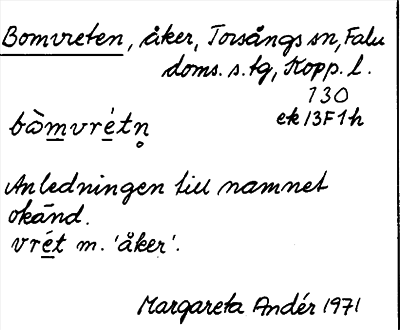 Bomvreten, åker, Torsångs sn, Falu
doms. s. tg, Kopp. l.
130
ek 13F1h
bòm̲vrét̲n̥
Anledningen till namnet
okänd.
vre̲t m. 'åker'.
Margareta Andér 1971